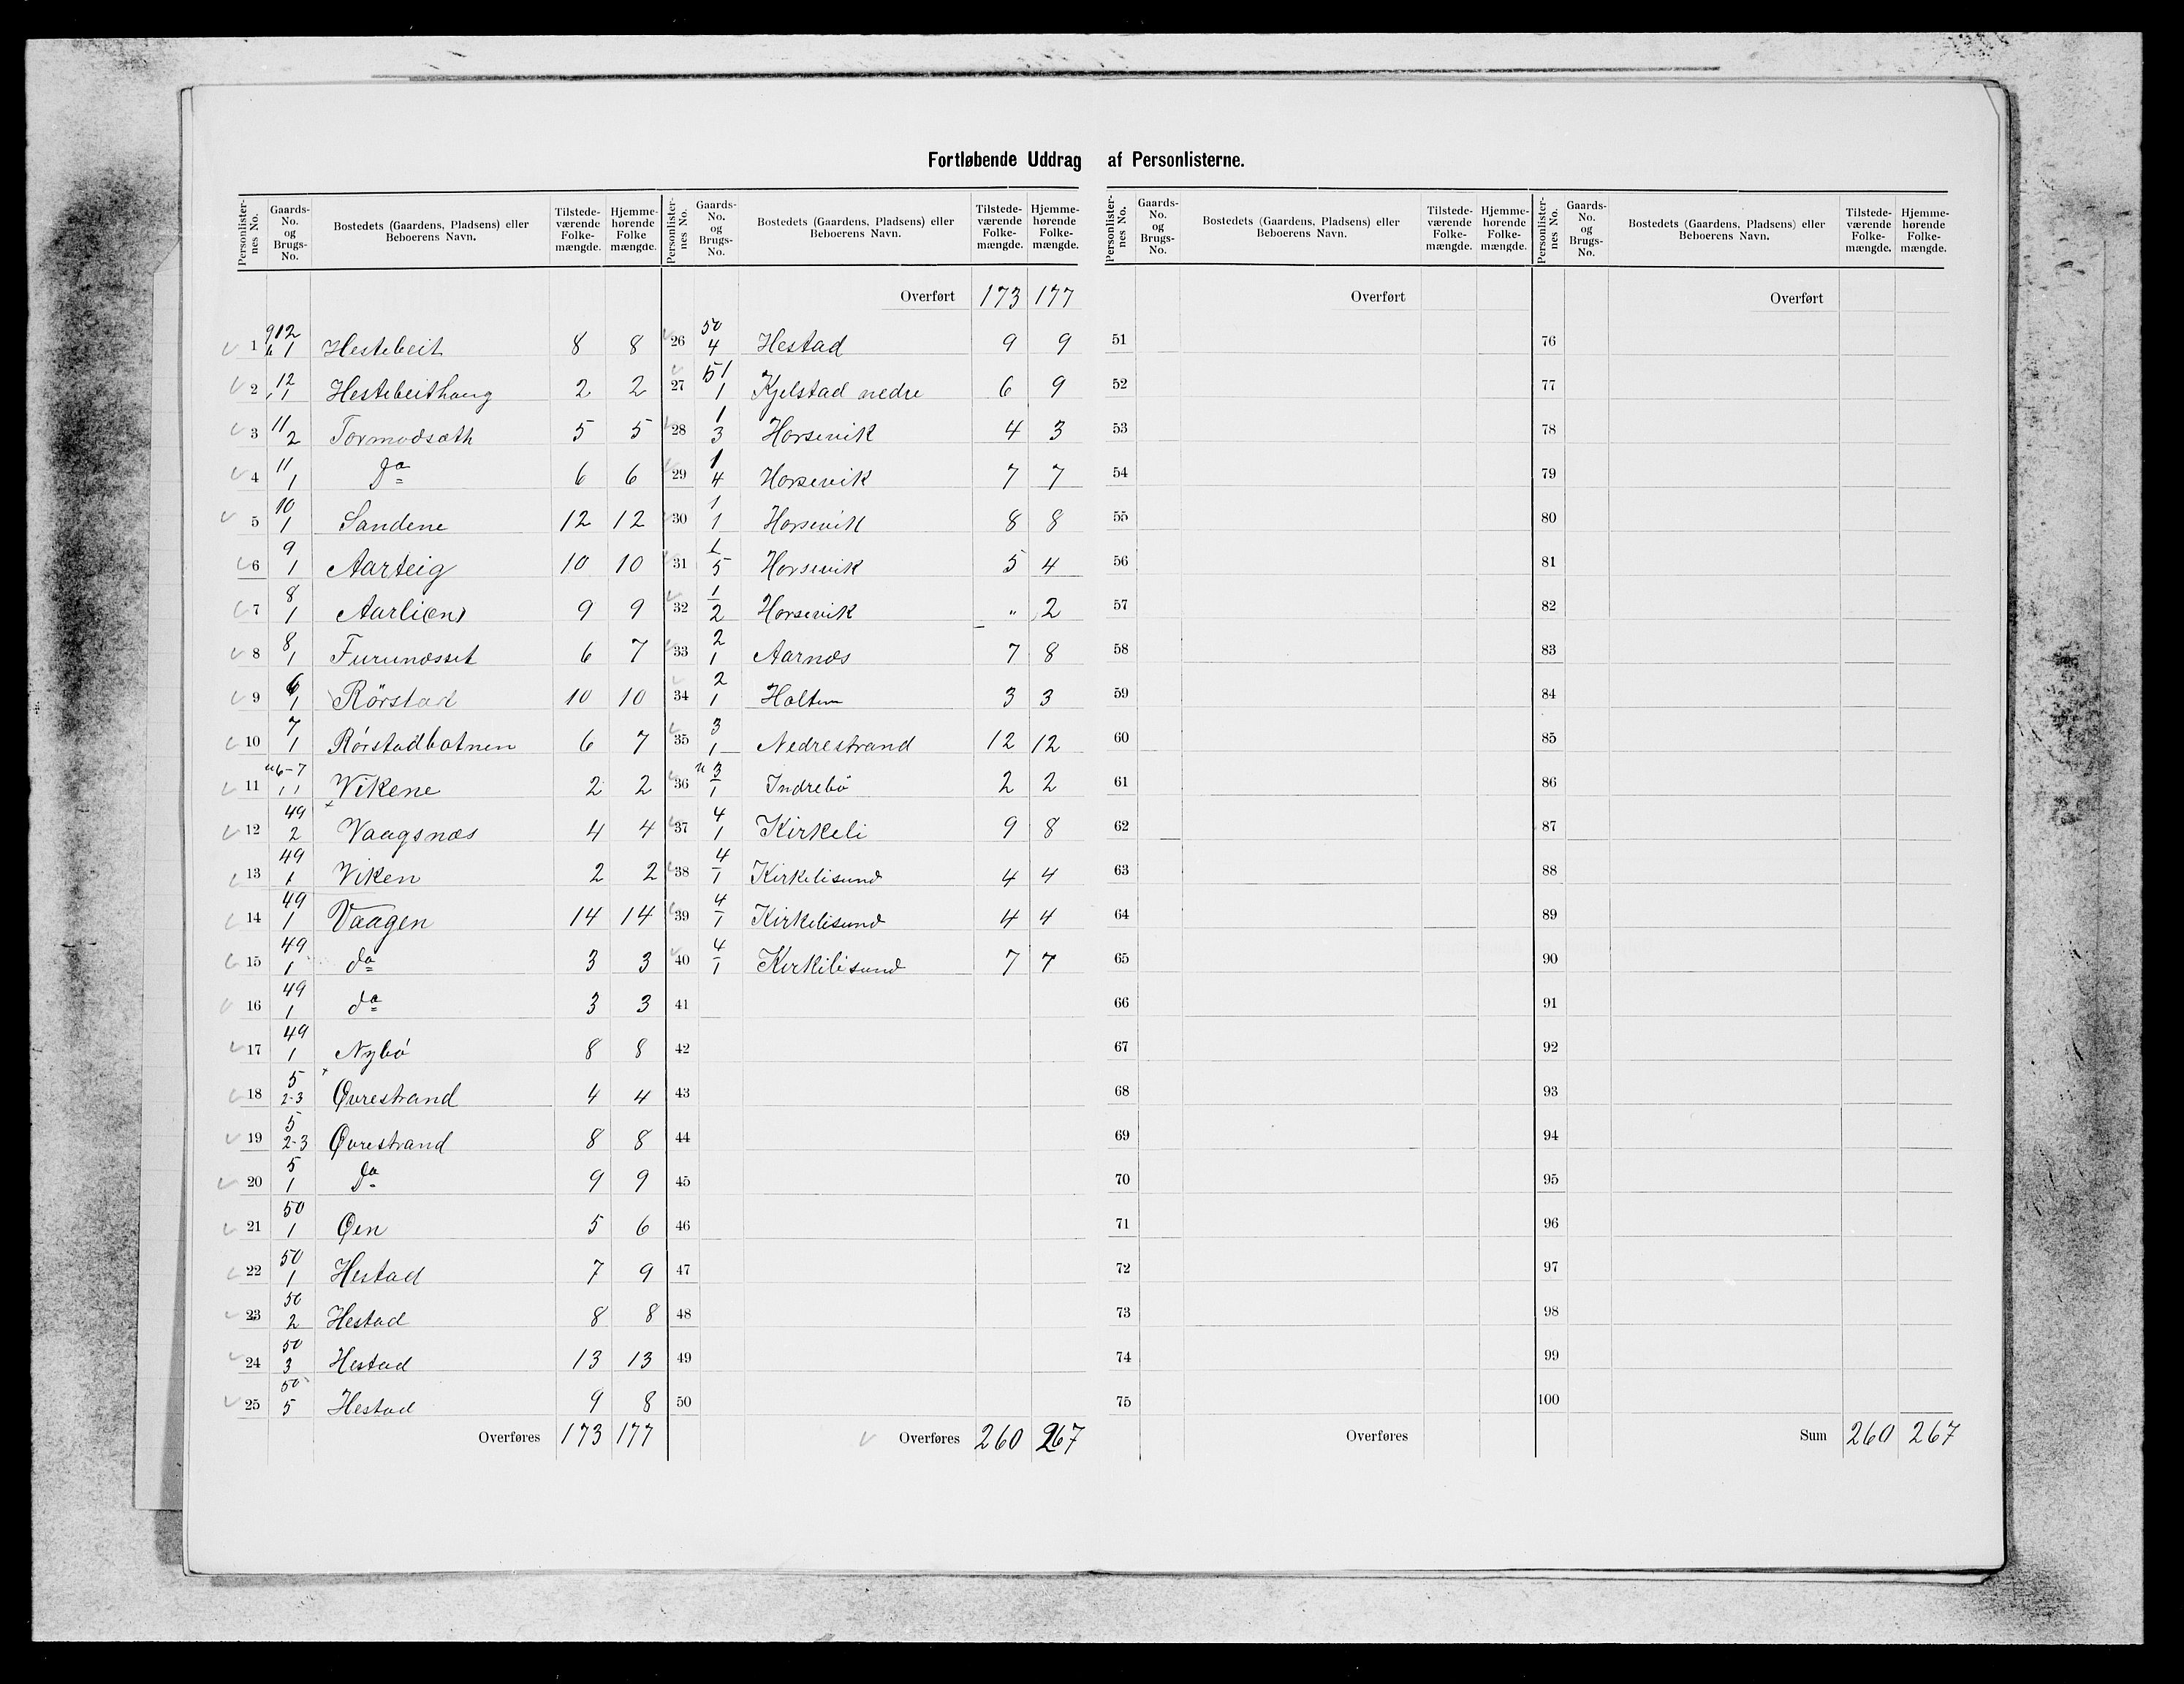 Fortløbende Uddrag af Personlisterne.
Personlister-nes No. | Gaards-No. og Brugs-No. | Bostedets (Gaardens, Pladsens) eller Beboerens Navn. | Tilstede-værende Folke-mængde. | Hjemme-hørende Folke mængde.
1 12/1 Hestebeit 8 8
2 12/1 Hestebeithaug 2 2
3 11/2 Tormodsæth 5 5
4 11/1 Do 6 6
5 10/1 Sandene 12 12
6 9/1 Aarteig 10 10
7 8/1 Aarlien 9 9
8 8/1 Furunæsset 6 7
9 6/1 Rörstad 10 10
10 7/1 Rörstadbotnen 6 7
11 6-7/1 1 Vikene 2 2
12 49/2 Vaagsnæs 4 4
13 49/1 Viken 2 2
14 49/1 Vaagen 14 14
15 49/1 do 3 3
16 49/1 do 3 3
17 49/1 Nybó 8 8
18 5/2-3 Øvrestrand 4 4
19 5/2-3 Øvrestrand 8 8
20 5/1 Do 9 9
21 50/1 Øen 5 6
22 50/1 Hestad 7 9
23 50/2 Hestad 8 8
24 50/3 Hestad 13 13
25 50/5 Hestad 9 8
Overføres 173 177
Personlister-nes No. | Gaards-No. og Brugs-No. | Bostedets (Gaardens, Pladsens) eller Beboerens Navn. | Tilstede-værende Folke-mængde. | Hjemme-hørende Folke-mængde.
Overført 173 177
26 50/4 Hestad 9 9
27 51/1 Kjelstad nedre 6 9
28 1/3 Horsevik 4 3
29 1/4 Horsevik 7 7
30 1/1 Horsevik 8 8
31 1/5 Horsevik 5 4
32 1/2 Horsevik " 2
33 2/1 Aarnæs 7 8
34 2/1 Holten 3 3
35 3/1 Nedrestrand 12 12
36 3/1 Indrebö 2 2
37 4/1 Kirkeli 9 8
38 4/1 Kirkelisund 4 4
39 4/1 Kirkelisund 4 4
40 4/1 Kirkelisund 7 7
41
42
43
44
45
46
47
48
49
50
Overføres 260 267
Personlister-nes No. | Gaards-No. og Brugs-No. | Bostedets (Gaardens, Pladsens) eller Beboerens Navn. | Tilstede-værende Folke-mængde. | Hjemme-hørende Folke-mængde.
Overført
51
52
53
54
55
56
57
58
59
60
61
62
63
64
65
66
67
68
69
70
71
72
73
74
75
Overføres
Personlister-nes No. | Gaards-No. og Brugs-No. | Bostedets (Gaardens, Pladsens) eller Beboerens Navn. | Tilstede-værende Folke-mængde. | Hjemme-hørende Folke-mængde.
Overført
76
77
78
79
80
81
82
83
84
85
86
87
88
89
90
91
92
93
94
95
96
97
98
99
100
Sum 260 267